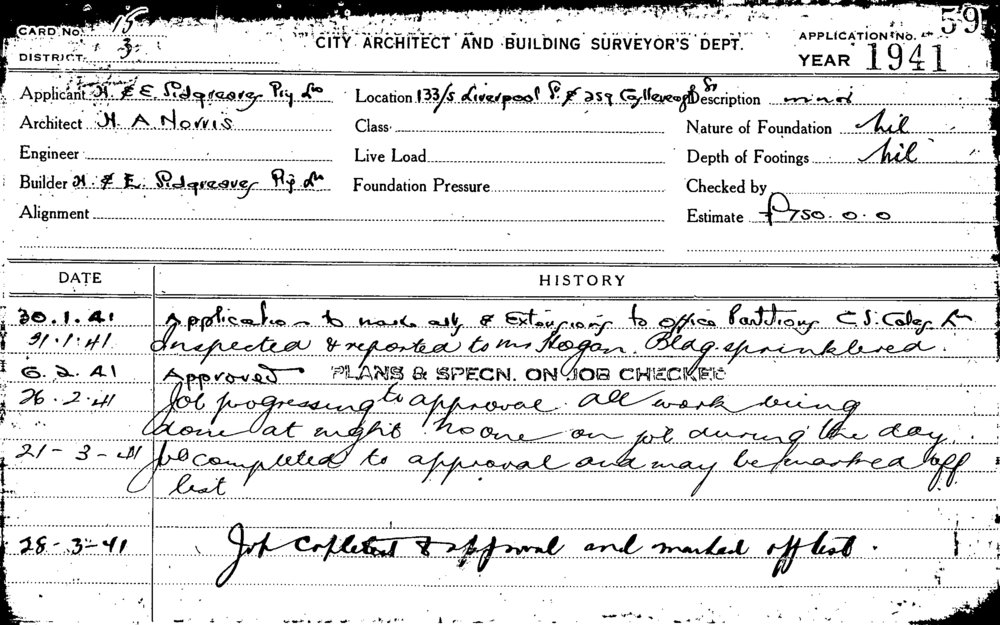 CARD No. 15
DISTRICT 3
CITY ARCHITECT AND BUILDING SURVEYOR'S DEPT.
APPLICATION No. 59
YEAR 1941
Applicant H. & E. Sidgreaves Pty Ltd
Location 133/5 Liverpool St. & 259
Description minor
Architect H. A Norris
Class
Nature of Foundation Nil
Engineer
Live Load
Depth of Footings Nil
Builder H. & E. Sidgreaves Pty Ltd
Foundation Pressure
Checked by
Alignment
Estimate £750.0.0
DATE HISTORY
30.1.41 Application to make alts & Extensions to office Partitions Coles
31.1.41 Inspected & reported to Mr Hogan. Bldg. sprinklered.
6.2.41 Approved PLANS & SPECN. ON JOB CHECKED
26.2.41 Job progressing to approval. All work being
done at night. No one on job during the day.
21-3-41 Job completed to approval and may be marked off
list
28-3-41 Job approval and marked off list.